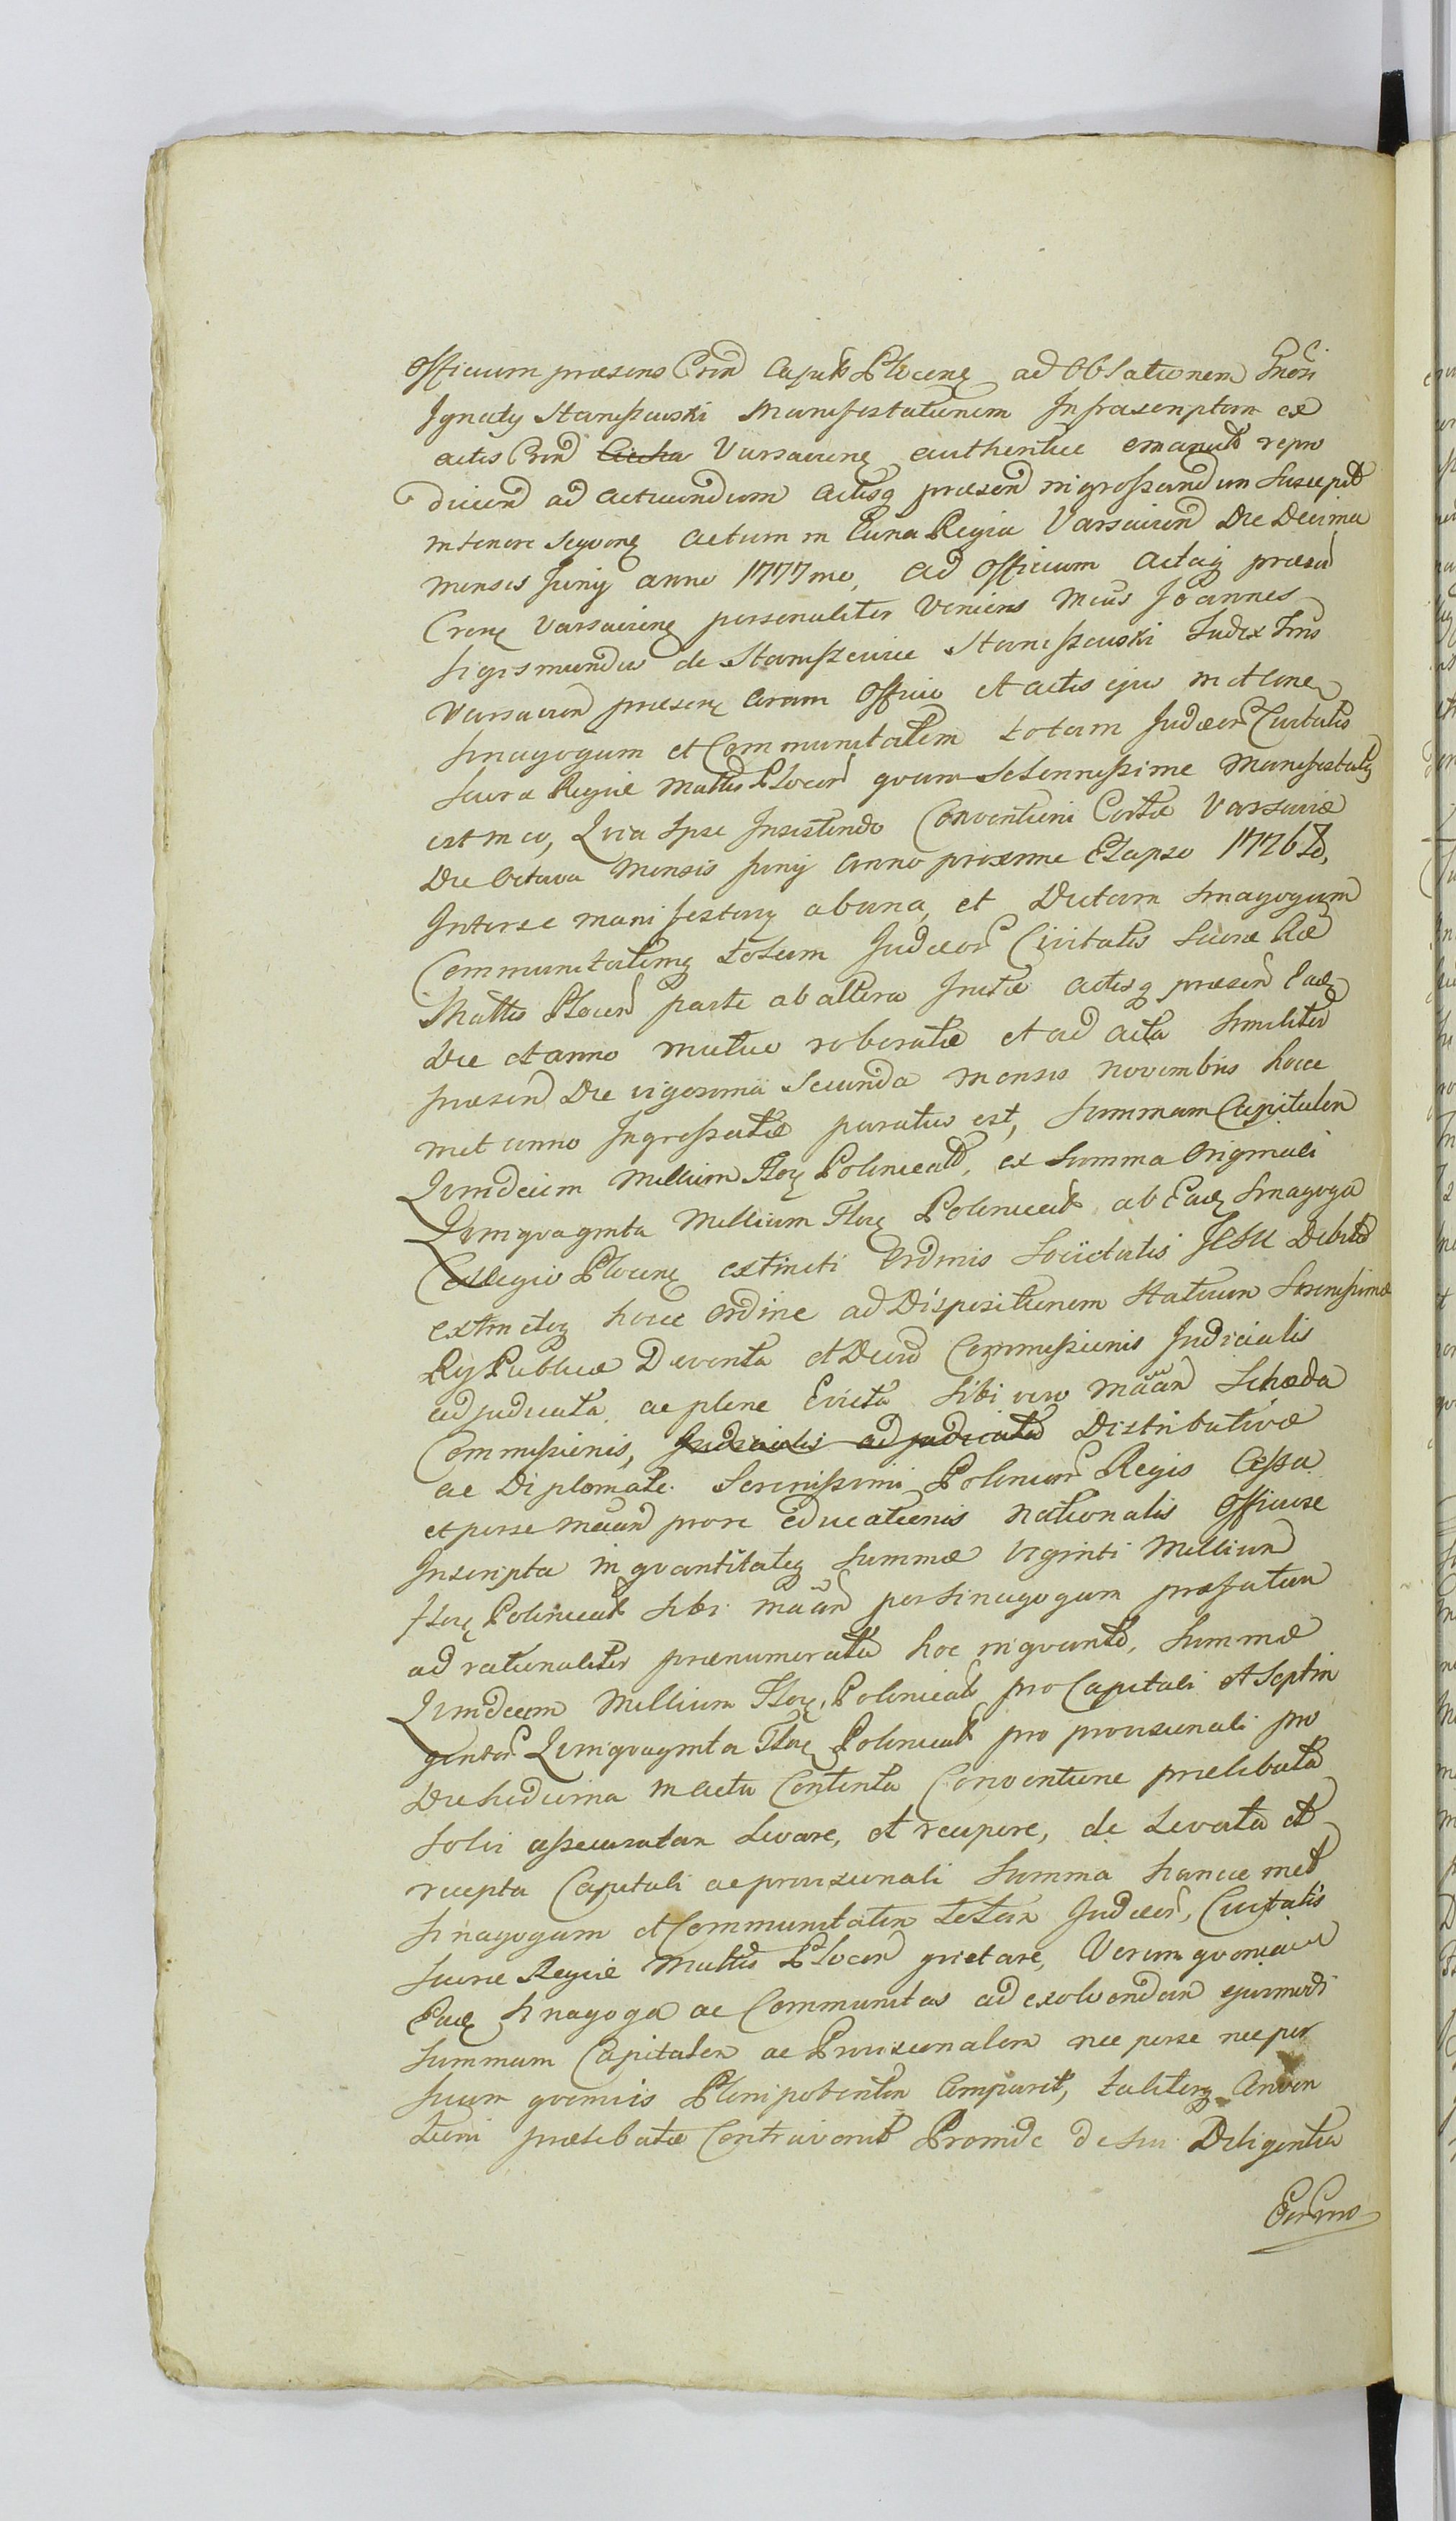 Officium præsens Crên Capitłe Plocenę ad Oblationem Gnêsi
Ignatij Staniszewski Manifestationem Infrascriptam ex
actis Crên Varsaviene authentice emanat repro
ducend ad acticandum actisq præsen ingrossandum suscepit
in tenore seqvenę Actum in Curia Regia Varsavien Die Decima
mensis Junij anno 1777mo, Ad Officium Actaq præsen
Crenę Varsavienę personaliter Veniens Mcus Joannes
Sigismundus de Staniszewice Staniszewski Judex Trris
Varsavien præsenę Coram Officio et actis ejus in et conę
Sinagogam et Communitatem totam Judæor Civitatis
Sacræ Regiæ Mattis Plocen qvam Solennissime Manifestatę
est in eo, Qvia Ipse Insistendo Conventioni Certæ Varsaviæ
Die Octava Mensis Junij Anno proxime Elapso 1776to,
Inter se manifestanę ab una, et Dictam Sinagogam
Communitatemę totam Judæor Civitatis Sacræ Ræ
Mattis Plocen parte ab altera Initæ actisq præsen Eadę
Die et anno mutuo roboratæ et ad acta similiter
præsen Die vigesima Secunda mensis novembris hocce
met anno Ingrossatæ paratus est, Summam Capitalem
Qvindecim Millium Florę Polonicat, ex Summa Originali
Qvinqvaginta Millium Florę Polonicat ab Eadę Sinagoga
Collegio Plocenę extincti Ordinis Societatis JESU Debita
extinctoq hocce Ordine ad Dispositionem Statuum Serenissimæ
Rei Publicæ Deventa et Decrto Commissionis Judicialis
adjudicata ac plene Evicta sibi vero Maãn Schæda
Commissionis, Judicialis adjudicata Distributivæ
ac Diplomate Serenissimi Polonior Regis Cessa
et per se Maãn pro re Educationis Nationalis Officiose
Inscripta in qvantitatę Summæ Viginti Millium
florę Polonicat sibi Maãn per Sinagogam præfatam
ad rationaliter prænumerata hoc in qvant, Summæ
Qvindecim Millium Florę, Polonicat pro Capitali et Septin
gentor Qvinqvaginta Florę Polonicat pro provisionali pro
Die hodierna in actu Contenta Conventione prælibata
solvi assecuratam Levare, et recipere, de Levata et
recepta Capitali ac provisionali Summa hancce met
Sinagogam et Communitatem totam Judæor, Civitatis
Sacræ Regiæ Mattis Plocen qvietare, Verum qvoniam
Eadę Sinagoga ac Communitas ad exolvendam ejusmodi
Summam Capitalem ac Provisionalem nec per se nec per
suum qvemvis Plenipotentem Comparet, taliterq Conven
tioni prælibatæ Contravenit Proinde de sui Diligentia